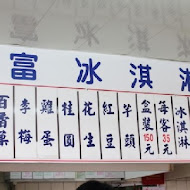 富冰淇淋
冰淇淋
每客35元
盒裝150元
芋頭
紅豆
花生
桂圓
雞蛋
李梅
百香菓